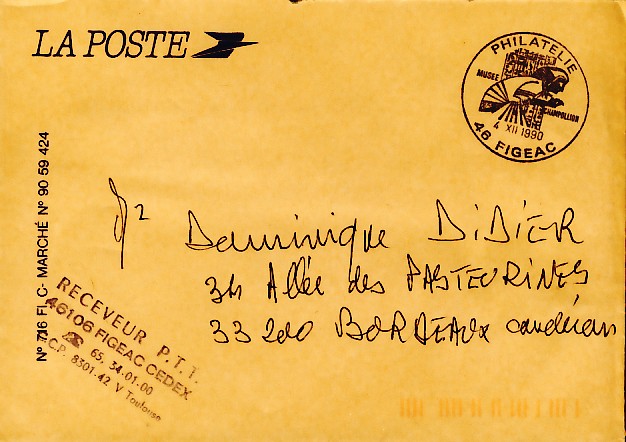 LA POSTE
PHILATELIE
MUSEE
CHAMPOLLION
4 XII 1990
46 FIGEAC
N° 716 FI. C- MARCHÉ N° 90 59 424
Dominique DiDiER
34 Allée des PASTEURINES
33 200 BORDEAUX caudéran
RECEVEUR P.T.T.
46106 FIGEAC CEDEX
☎ 65.34.01.00
C.C.P. 8301.42 V Toulouse